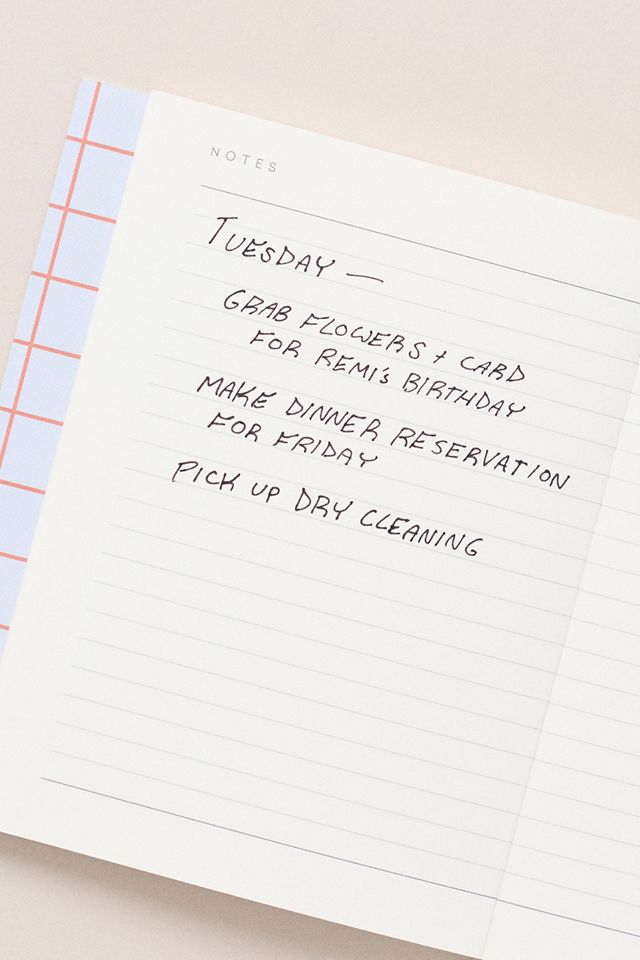 NOTES
TUESDAY —
GRAB FLOWERS + CARD
FOR REMI's BIRTHDAY
MAKE DINNER RESERVATION
FOR FRIDAY
PICK UP DRY CLEANING